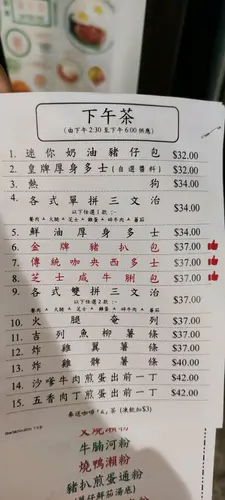 下午茶
(由下午 2:30 至下午 6:00 供應)
1. 迷你奶油豬仔包 $32.00
2. 皇牌厚身多士(自選醬料) $32.00
3. 熱狗 $34.00
4. 各式單拼三文治 $34.00
以下任選1款:-
餐肉▲火腿▲芝士▲雞蛋▲碎牛肉▲蕃茄
5. 鮮油厚身多士 $34.00
6. 金牌豬扒包 $37.00
7. 傳統咖央西多士 $37.00
8. 芝士咸牛脷包 $37.00
9. 各式雙拼三文治 $37.00
以下任選2款:-
餐肉▲火腿▲芝士▲雞蛋▲碎牛肉▲蕃茄
10. 火腿奄列 $37.00
11. 吉列魚柳薯條 $37.00
12. 炸雞翼薯條 $37.00
13. 炸雞髀薯條 $40.00
14. 沙嗲牛肉煎蛋出前一丁 $42.00
15. 五香肉丁煎蛋出前一丁 $42.00
奉送咖啡「或」茶 (凍飲加$3)
叉燒瀨粉
牛腩河粉
燒鴨瀨粉
豬扒煎蛋通粉